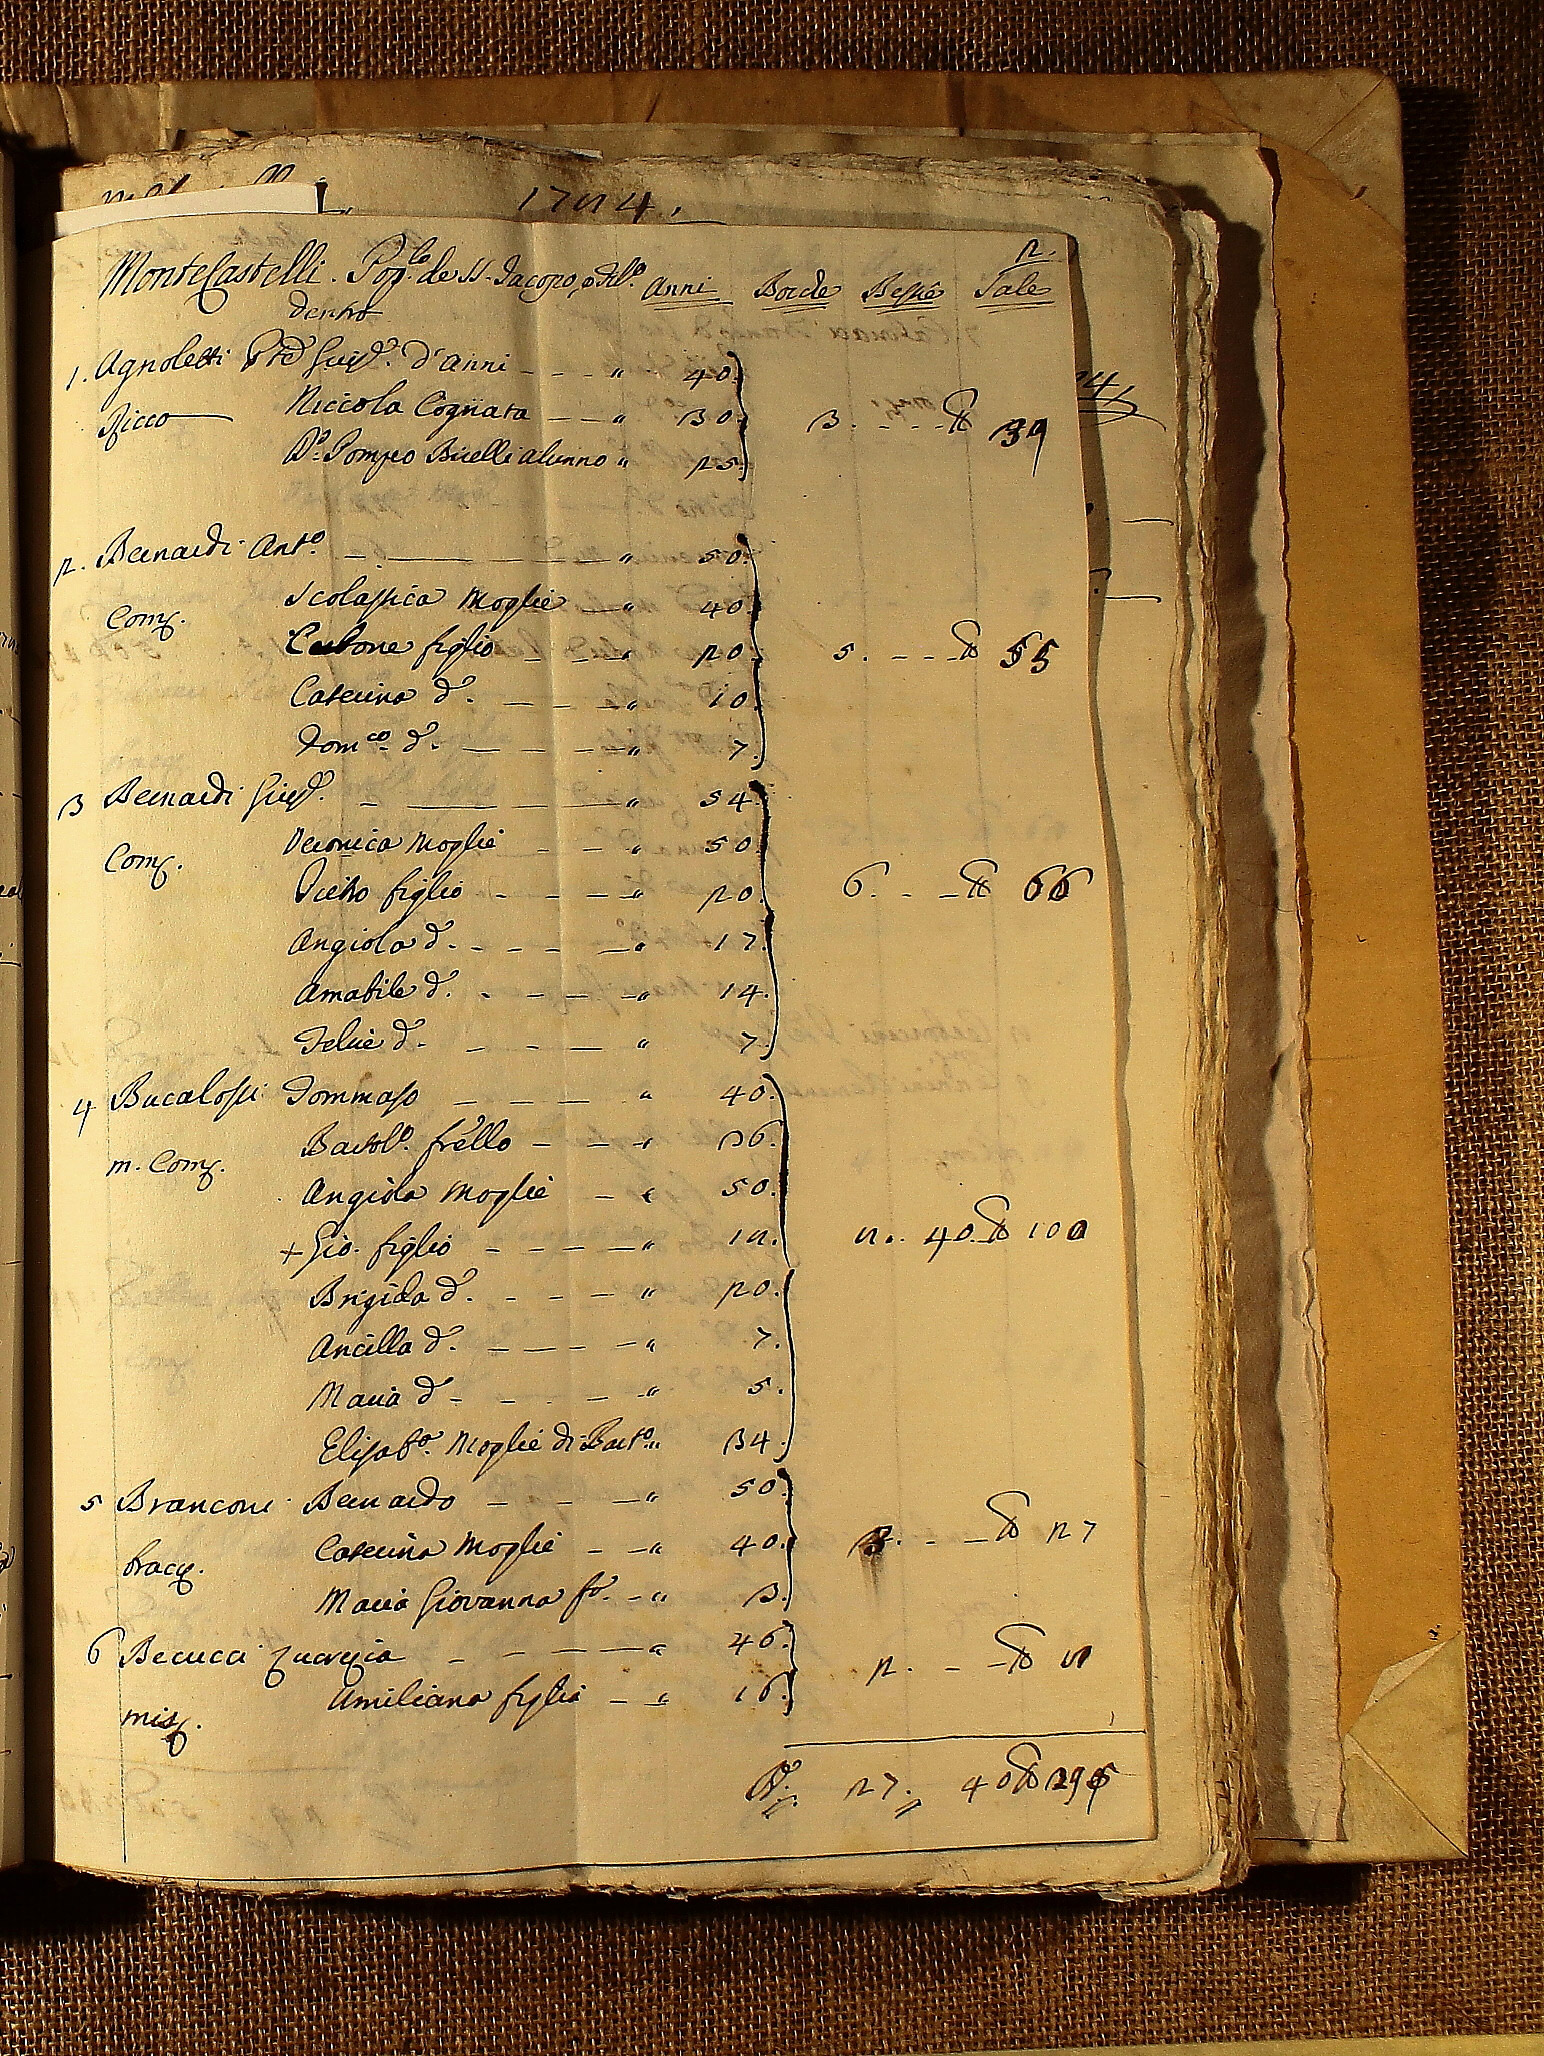 1784.
2.
MonteCastelli. Pop.lo de SS. Jacopo, e Fil.o Anni Bocche Bestie Sale
dentro
1. Agnoletti Gius.e d'anni - - - " 40.
Ricco Niccola Cognata — — " 30. 3. - - - ℔ 39
D.o Pompeo Bucelli alunno " 25.
2. Bernardi Ant.o — " 50.
Com. Scolastica Moglie — " 40.
Carbone figlio - - - - " 20. 5. - - - ℔ 55
Caterina d.a - - - - " 10.
Dom.co d.o - - - - " 7.
3 Bernardi Gius.e — " 54.
Com. Veronica Moglie - - - " 50.
Pietro figlio - - - - " 20. 6. - - ℔ 66
Angiola d.a - - - - " 17.
Amabile d.a - - - - " 14.
Felice d.o - - - - " 7.
4 Bucalossi Tommaso - - - - " 40.
m. Com. Bartol.o frello - - - " 36.
Angiola Moglie - - " 50.
+ Gio. figlio - - - - " 18. 8. 40. ℔ 100
Brigida d.a - - - - " 20.
Ancilla d.a - - - - " 7.
Maria d.a - - - - " 5.
Elisab.a Moglie di Bart.o " 34.
5 Branconi Bernardo - - - " 50.
bracc. Caterina Moglie - - " 40. 3. - - ℔ 27
Maria Giovanna f.a - " 3.
6 Becucci Lucrezia - - - - " 46. 2. - - ℔ 8
mis. Amiliana figlia - - " 16.
27. 40 ℔ 295